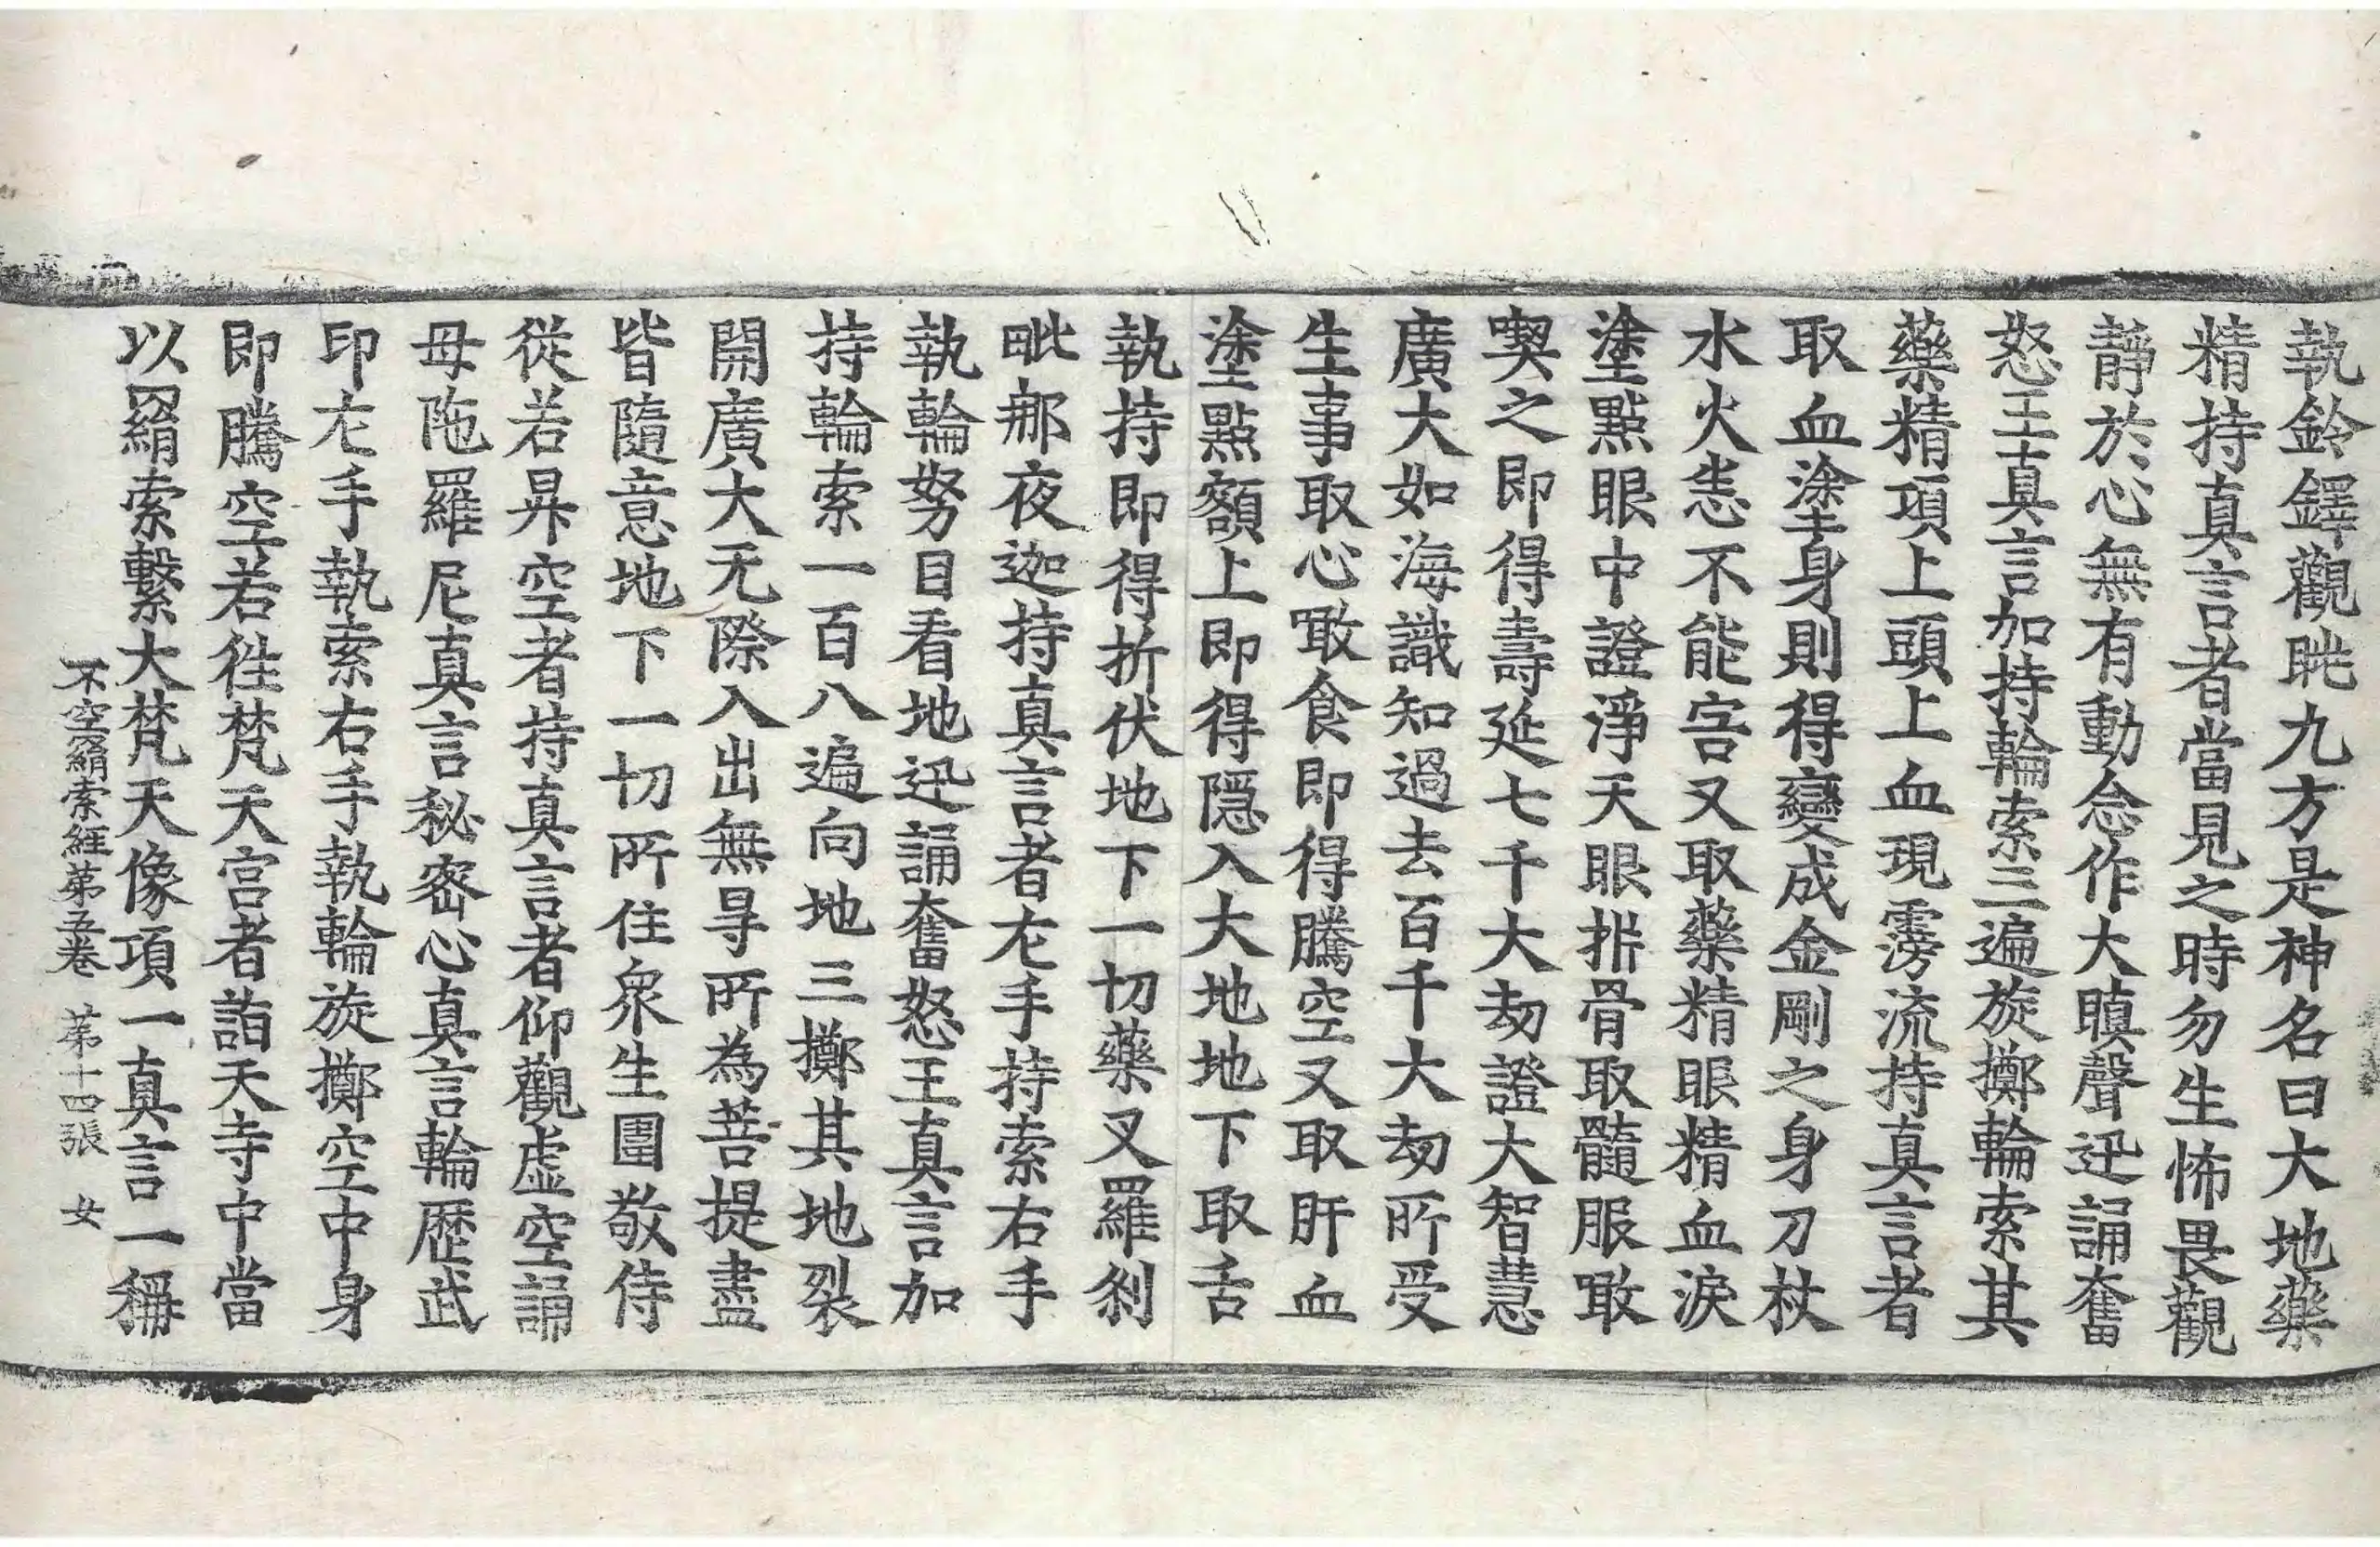 執鈴鐸觀眺九方是神名曰大地藥
精持真言者當見之時勿生怖畏觀
靜於心無有動念作大瞋聲迅誦奮
怒王真言加持輪索三遍旋擲輪索其
藥精項上頭上血現霶流持真言者
取血塗身則得變成金剛之身刀杖
水火恚不能害又取藥精眼精血淚
塗點眼中證淨天眼拆骨取髓服噉
喫之即得壽延七千大劫證大智慧
廣大如海識知過去百千大劫所受
生事取心噉食即得騰空又取肝血
塗點額上即得隱入大地地下取舌
執持即得折伏地下一切藥叉羅剎
毗那夜迦持真言者左手持索右手
執輪努目看地迅誦奮怒王真言加
持輪索一百八遍向地三擲其地裂
開廣大无際入出無㝵所為菩提盡
皆隨意地下一切所住衆生圍敬侍
從若昇空者持真言者仰觀虛空誦
母陁羅尼真言秘密心真言輪歷武
印左手執索右手執輪旋擲空中身
即騰空若徃梵天宮者詣天寺中當
以羂索繫大梵天像項一真言一稱
不空羂索經第五卷 第十四張 女